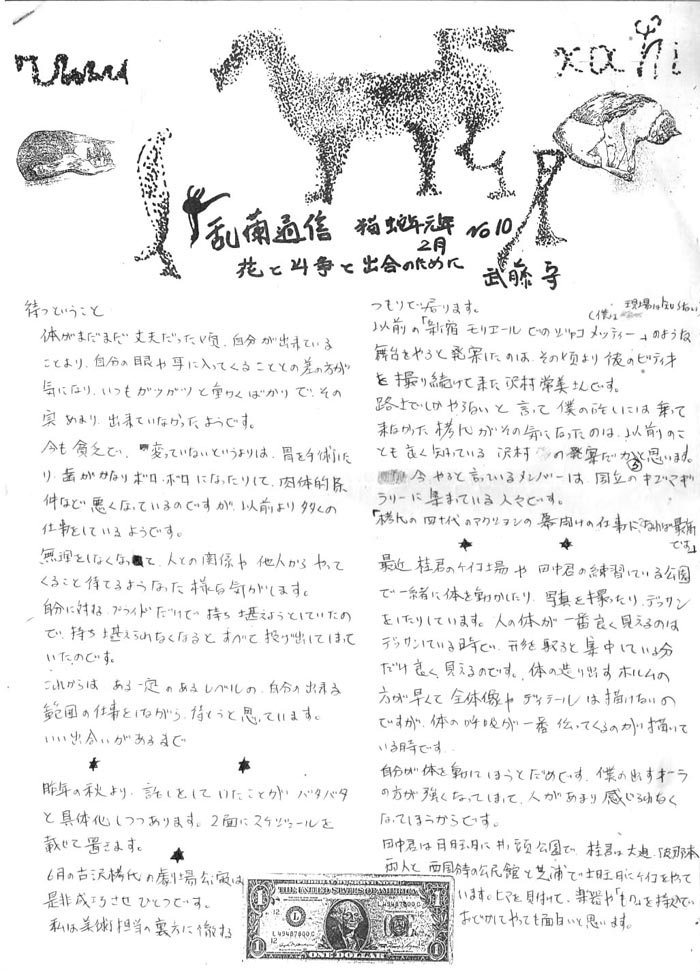 乱蘭通信 猫蛇年元年 2月 No10
花と斗争と出合のために
武藤守
待つということ
体がまだまだ丈夫だった頃、自分が出来ている
ことより、自分の眼や耳に入ってくることとの差の方が
気になり、いつもガツガツと動くばかりで、その
実あまり出来ていなかったようです。
今も貧乏で、変っていないというよりは、胃を手術した
り、歯がかなりボロボロになったりして、肉体的条
件など悪くなっているのですが、以前より多くの
仕事をしているようです。
無理をしなくなって、人との関係や他人からやって
くること待てるようなった様な気がします。
自分に対するプライドだけで持ち堪えようとしていたの
で、持ち堪えられなくなるとすべて投げ出してしまって
いたのです。
これからは、ある一定のあるレベルの、自分の出来る
範囲の仕事をしながら、待とうと思っています。
いい出合いがあるまで
昨年の秋より、話しをしていたことがバタバタ
と具体化しつつあります。2面にスケジュールを
載せて置きます。
6月の古沢栲の劇場公演は
是非成功させひとつです。
私は美術担当の裏方に徹する
つもりで居ります。
以前の「新宿モリエールでのジャコメッティー」のような
舞台をやると発案したのは、その頃より彼のビデイオ
を撮り続けて来た沢村常美さんです。
路上でしかやらないと言って僕の話しには乗って
来なかった栲がその気になったのは、以前のこ
とも良く知れている沢村の発案だからと思います。
今やると言っているメンバーは、国立のキゴマギャ
ラリーに集まている人々です。
最近、桂君のケイコ場や田中君の練習している公園
で一緒に体を動かしたり、写真を撮ったり、デッサン
をしたりしています。人の体が一番良く見えるのは
デッサンしている時で、形を取ると集中している分
だけ良く見えるのです。体の造り出すホルムの
方が早くて全体像やディテールは描けないの
ですが、体の呼吸が一番伝ってくるのが描いて
いる時です。
自分が体を動かしてしまうとだめです。僕の出すオーラ
の方が強くなってしまって、人があまり感じられなく
なってしまうからです。
田中君は日曜日に井ノ頭公園で、桂君は大道、阪那本
両人と西国領の公民館と芝浦で土曜日にケイコをやて
います。ヒマを見付けて、楽器や「もの」を持って
おしかけてやっても面白いと思います。
THE UNITED STATES OF AMERICA
L 49487800 C
ONE DOLLAR